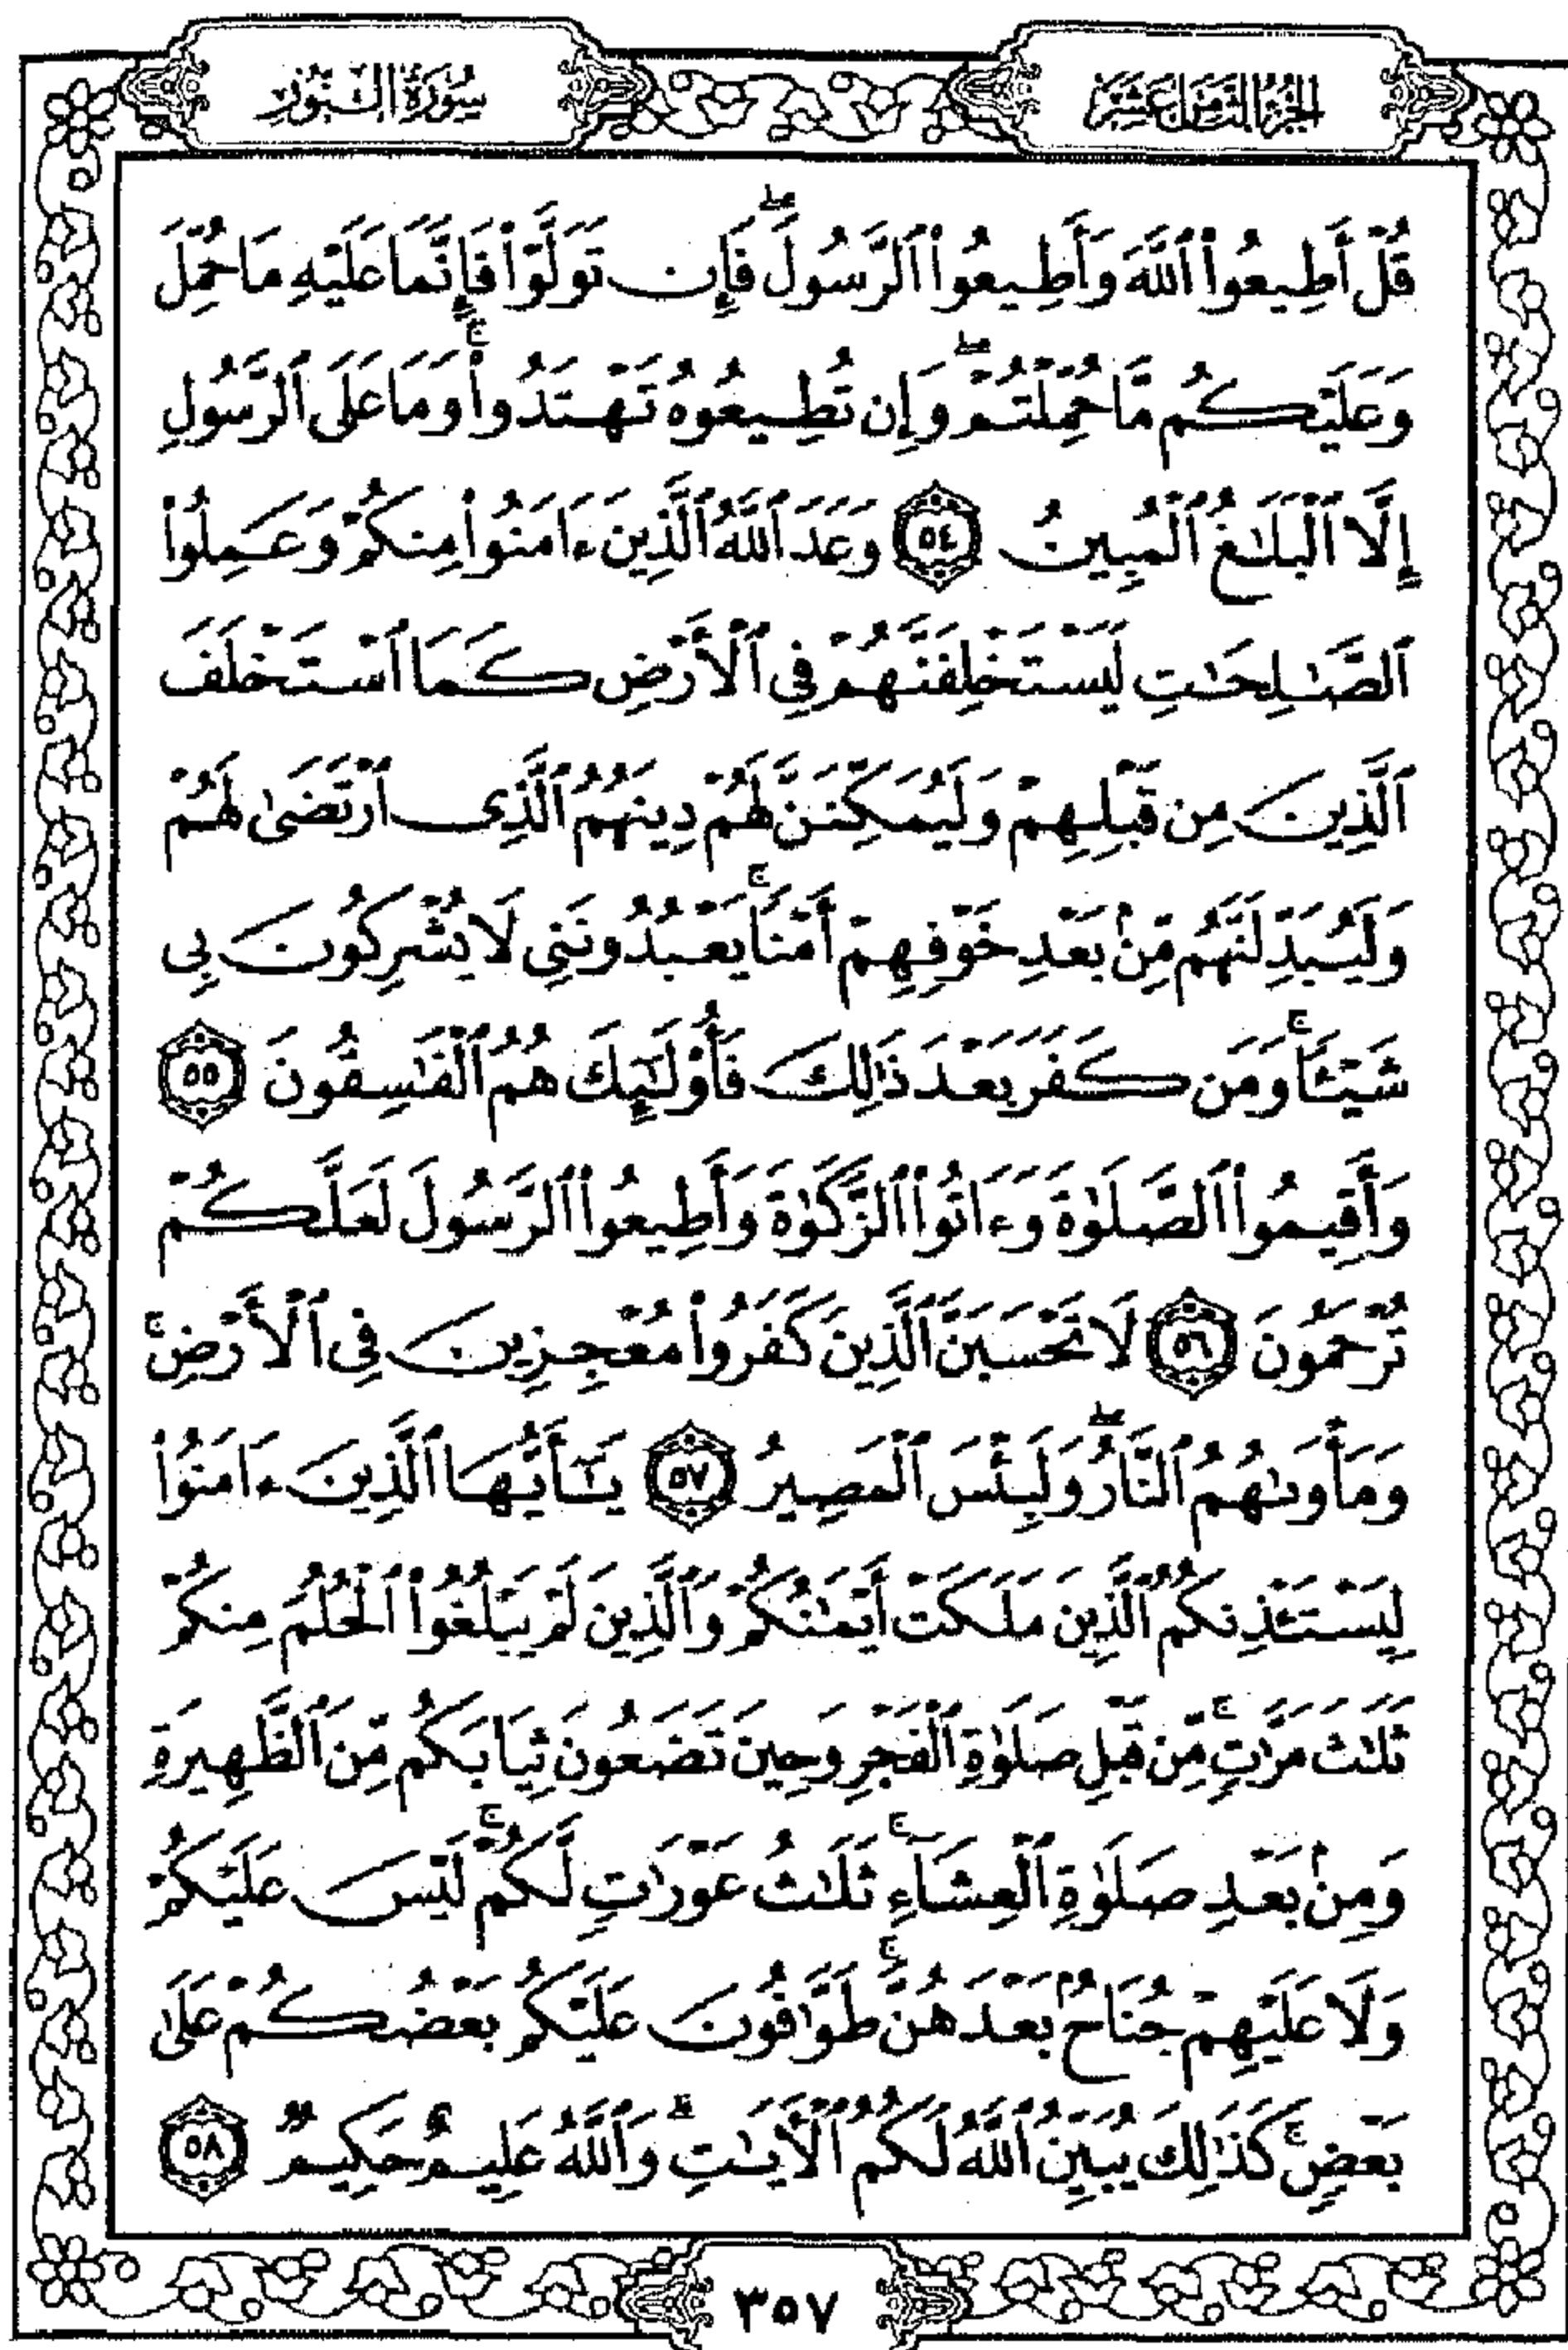 الجزء الثامن عشر
سورة النور
قُلْ أَطِيعُوا۟ ٱللَّهَ وَأَطِيعُوا۟ ٱلرَّسُولَ ۖ فَإِن تَوَلَّوْا۟ فَإِنَّمَا عَلَيْهِ مَا حُمِّلَ
وَعَلَيْكُم مَّا حُمِّلْتُمْ ۖ وَإِن تُطِيعُوهُ تَهْتَدُوا۟ ۚ وَمَا عَلَى ٱلرَّسُولِ
إِلَّا ٱلْبَلَٰغُ ٱلْمُبِينُ ٥٤ وَعَدَ ٱللَّهُ ٱلَّذِينَ ءَامَنُوا۟ مِنكُمْ وَعَمِلُوا۟
ٱلصَّٰلِحَٰتِ لَيَسْتَخْلِفَنَّهُمْ فِى ٱلْأَرْضِ كَمَا ٱسْتَخْلَفَ
ٱلَّذِينَ مِن قَبْلِهِمْ وَلَيُمَكِّنَنَّ لَهُمْ دِينَهُمُ ٱلَّذِى ٱرْتَضَىٰ لَهُمْ
وَلَيُبَدِّلَنَّهُم مِّنۢ بَعْدِ خَوْفِهِمْ أَمْنًا ۚ يَعْبُدُونَنِى لَا يُشْرِكُونَ بِى
شَيْـًٔا ۚ وَمَن كَفَرَ بَعْدَ ذَٰلِكَ فَأُو۟لَٰٓئِكَ هُمُ ٱلْفَٰسِقُونَ ٥٥
وَأَقِيمُوا۟ ٱلصَّلَوٰةَ وَءَاتُوا۟ ٱلزَّكَوٰةَ وَأَطِيعُوا۟ ٱلرَّسُولَ لَعَلَّكُمْ
تُرْحَمُونَ ٥٦ لَا تَحْسَبَنَّ ٱلَّذِينَ كَفَرُوا۟ مُعْجِزِينَ فِى ٱلْأَرْضِ ۚ
وَمَأْوَىٰهُمُ ٱلنَّارُ ۖ وَلَبِئْسَ ٱلْمَصِيرُ ٥٧ يَٰٓأَيُّهَا ٱلَّذِينَ ءَامَنُوا۟
لِيَسْتَـْٔذِنكُمُ ٱلَّذِينَ مَلَكَتْ أَيْمَٰنُكُمْ وَٱلَّذِينَ لَمْ يَبْلُغُوا۟ ٱلْحُلُمَ مِنكُمْ
ثَلَٰثَ مَرَّٰتٍ ۚ مِّن قَبْلِ صَلَوٰةِ ٱلْفَجْرِ وَحِينَ تَضَعُونَ ثِيَابَكُم مِّنَ ٱلظَّهِيرَةِ
وَمِنۢ بَعْدِ صَلَوٰةِ ٱلْعِشَآءِ ۚ ثَلَٰثُ عَوْرَٰتٍ لَّكُمْ ۚ لَيْسَ عَلَيْكُمْ
وَلَا عَلَيْهِمْ جُنَاحٌۢ بَعْدَهُنَّ ۚ طَوَّٰفُونَ عَلَيْكُم بَعْضُكُمْ عَلَىٰ
بَعْضٍ ۚ كَذَٰلِكَ يُبَيِّنُ ٱللَّهُ لَكُمُ ٱلْءَايَٰتِ ۗ وَٱللَّهُ عَلِيمٌ حَكِيمٌ ٥٨
٣٥٧